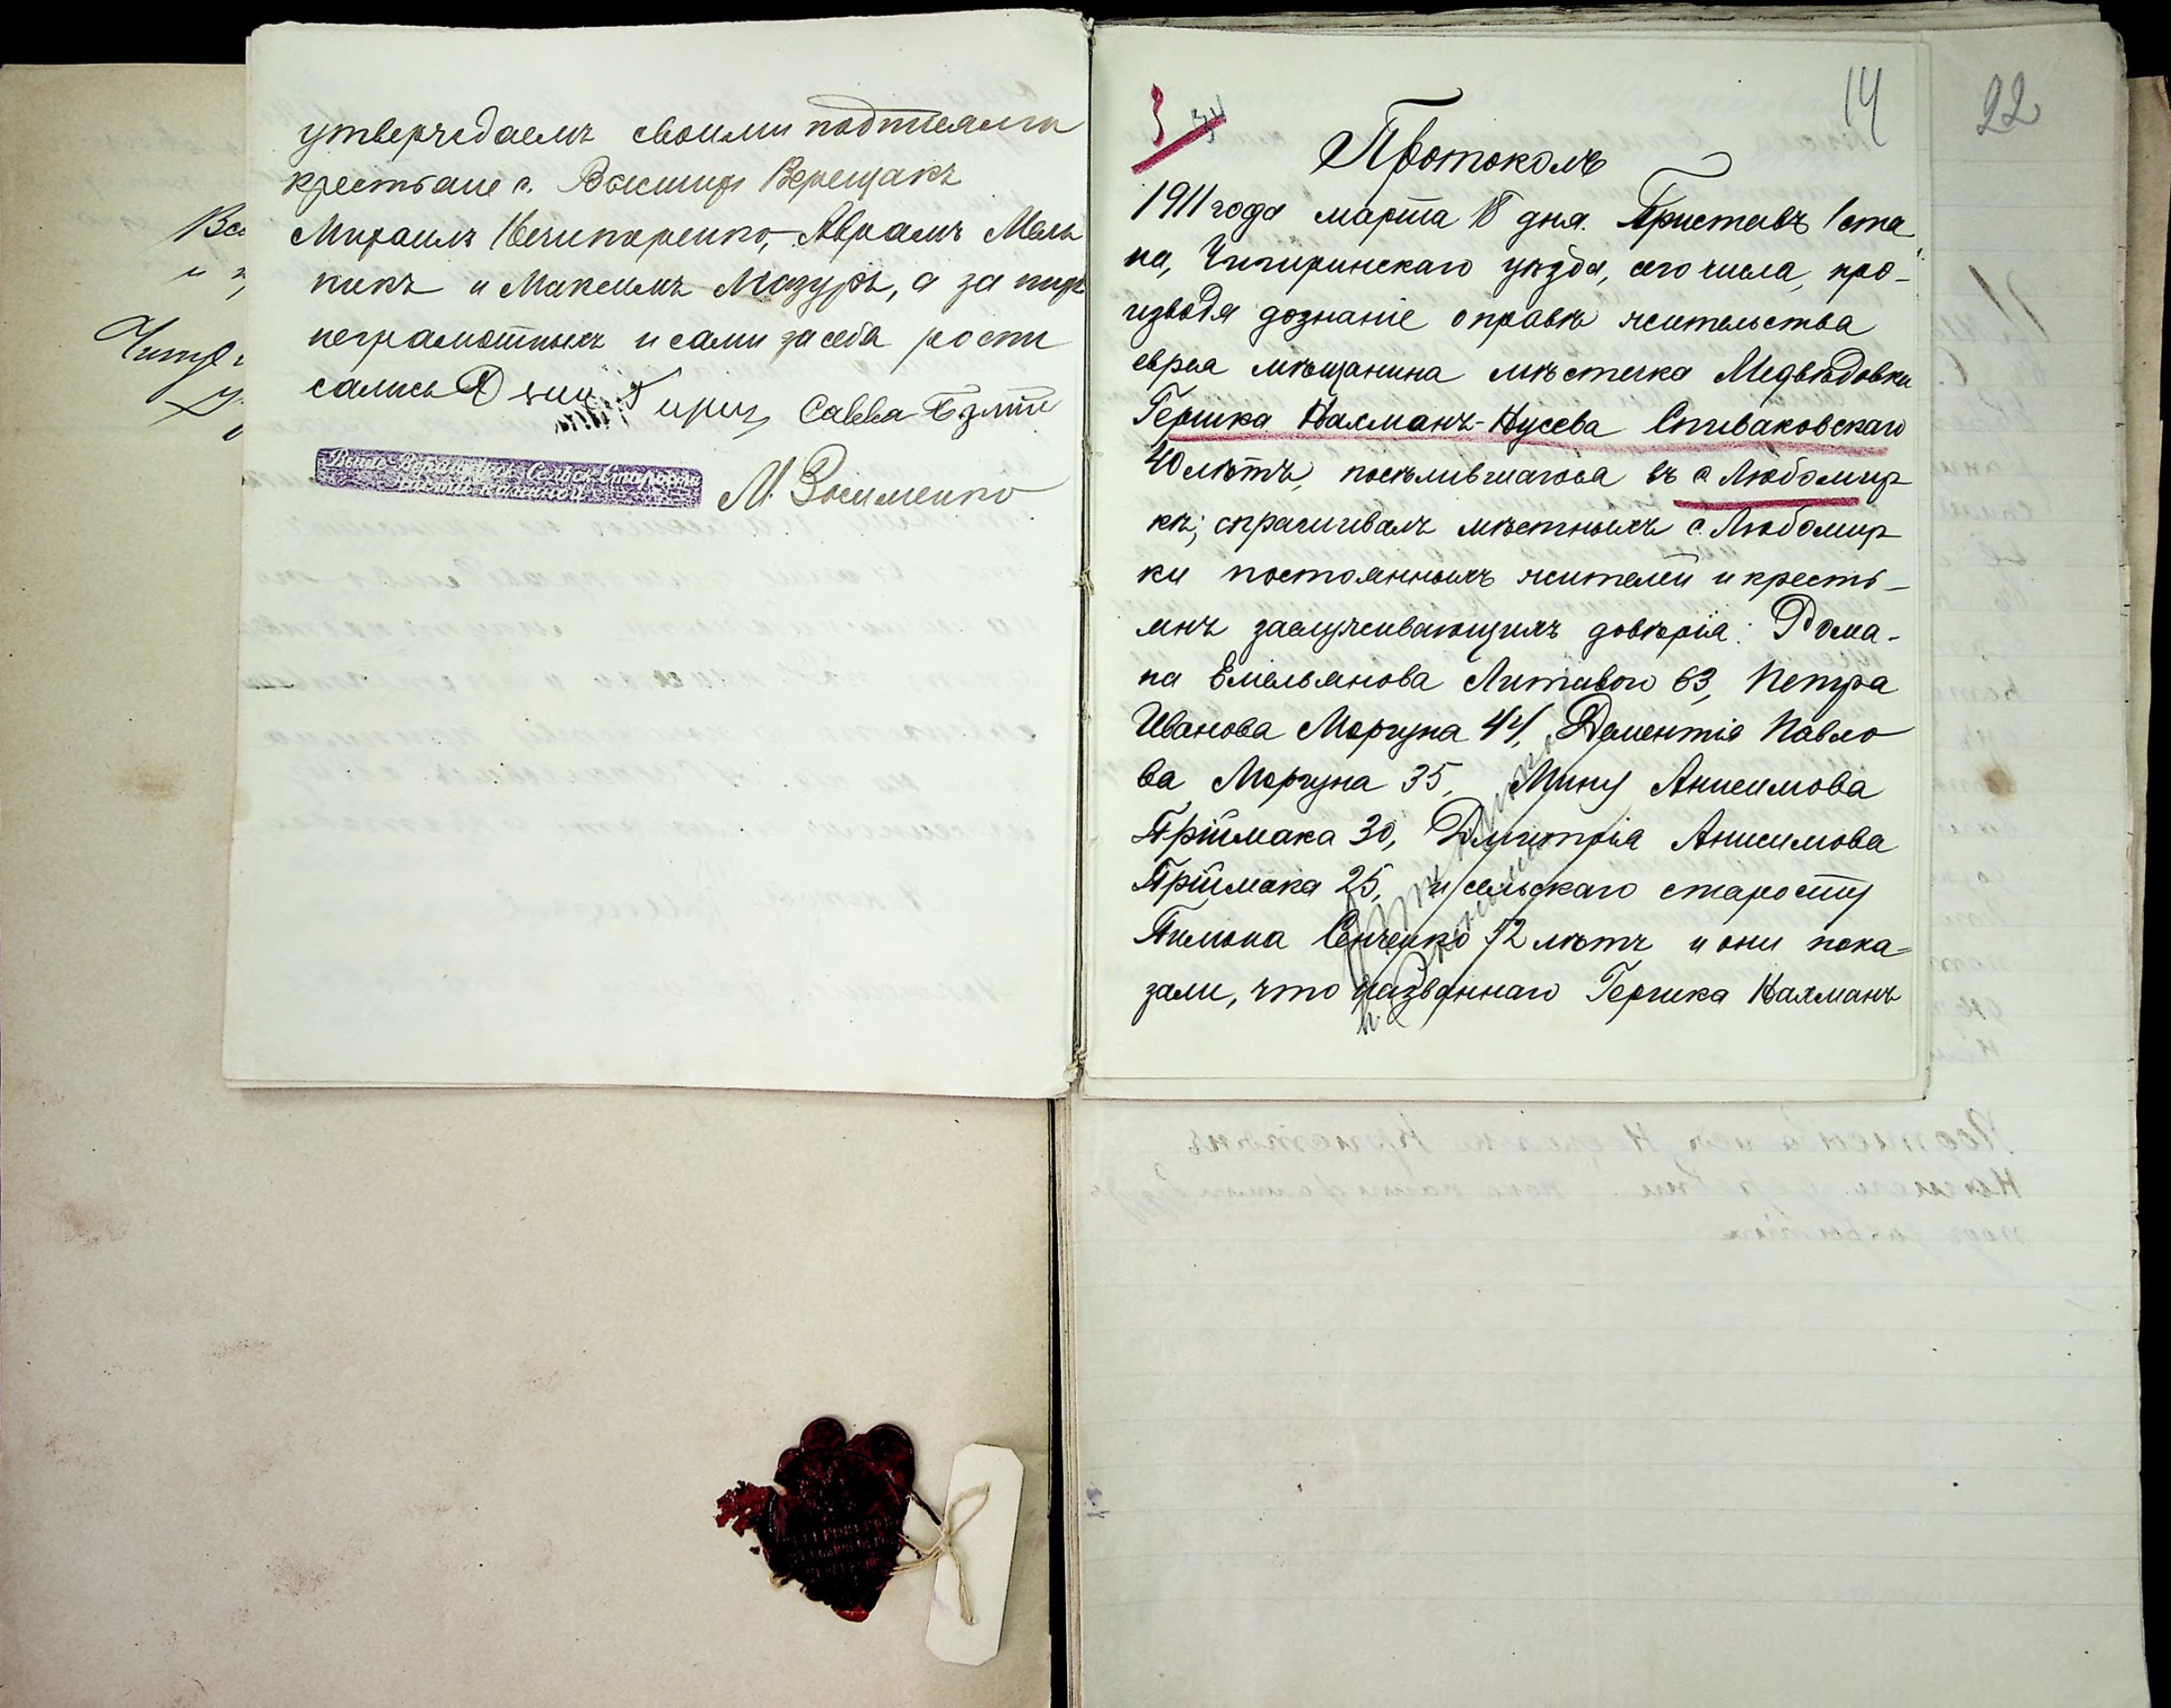 утверждаемъ своими подписями
крестьане с. Вышихъ Верещакъ
Михаилъ Нечипоренко, Аврамъ Мель
никъ и Максимъ Мазуръ, а за нихъ
неграмотныхъ и сами за себя роспи
сались Савва
М. Восименко
Все
Читр
14
22
3
Протоколъ
1911 года марта 18 дня. Приставъ 1 ста
на, Чигиринскаго уѣзда, сего числа, про-
изводя дознаніе о правѣ жительства
еврея мѣщанина мѣстечка Медвѣдовки
Гершка Нахманъ-Нусева Спиваковскаго
40 лѣтъ, поселившагося въ с. Любомир
кѣ; спрашивалъ мѣстныхъ с. Любомир
ки постоянныхъ жителей и кресть-
янъ заслуживающихъ довѣрія: Рома-
на Емельянова Литивого 63, Петра
Иванова Моргуна 44, Дементія Павло
ва Моргуна 35, Мину Анисимова
Пріймака 30, Дмитрія Анисимова
Пріймака 25, и сельскаго старосту
Пимона Сенченко 52 лѣтъ и они пока-
зали, что названнаго Гершка Нахманъ